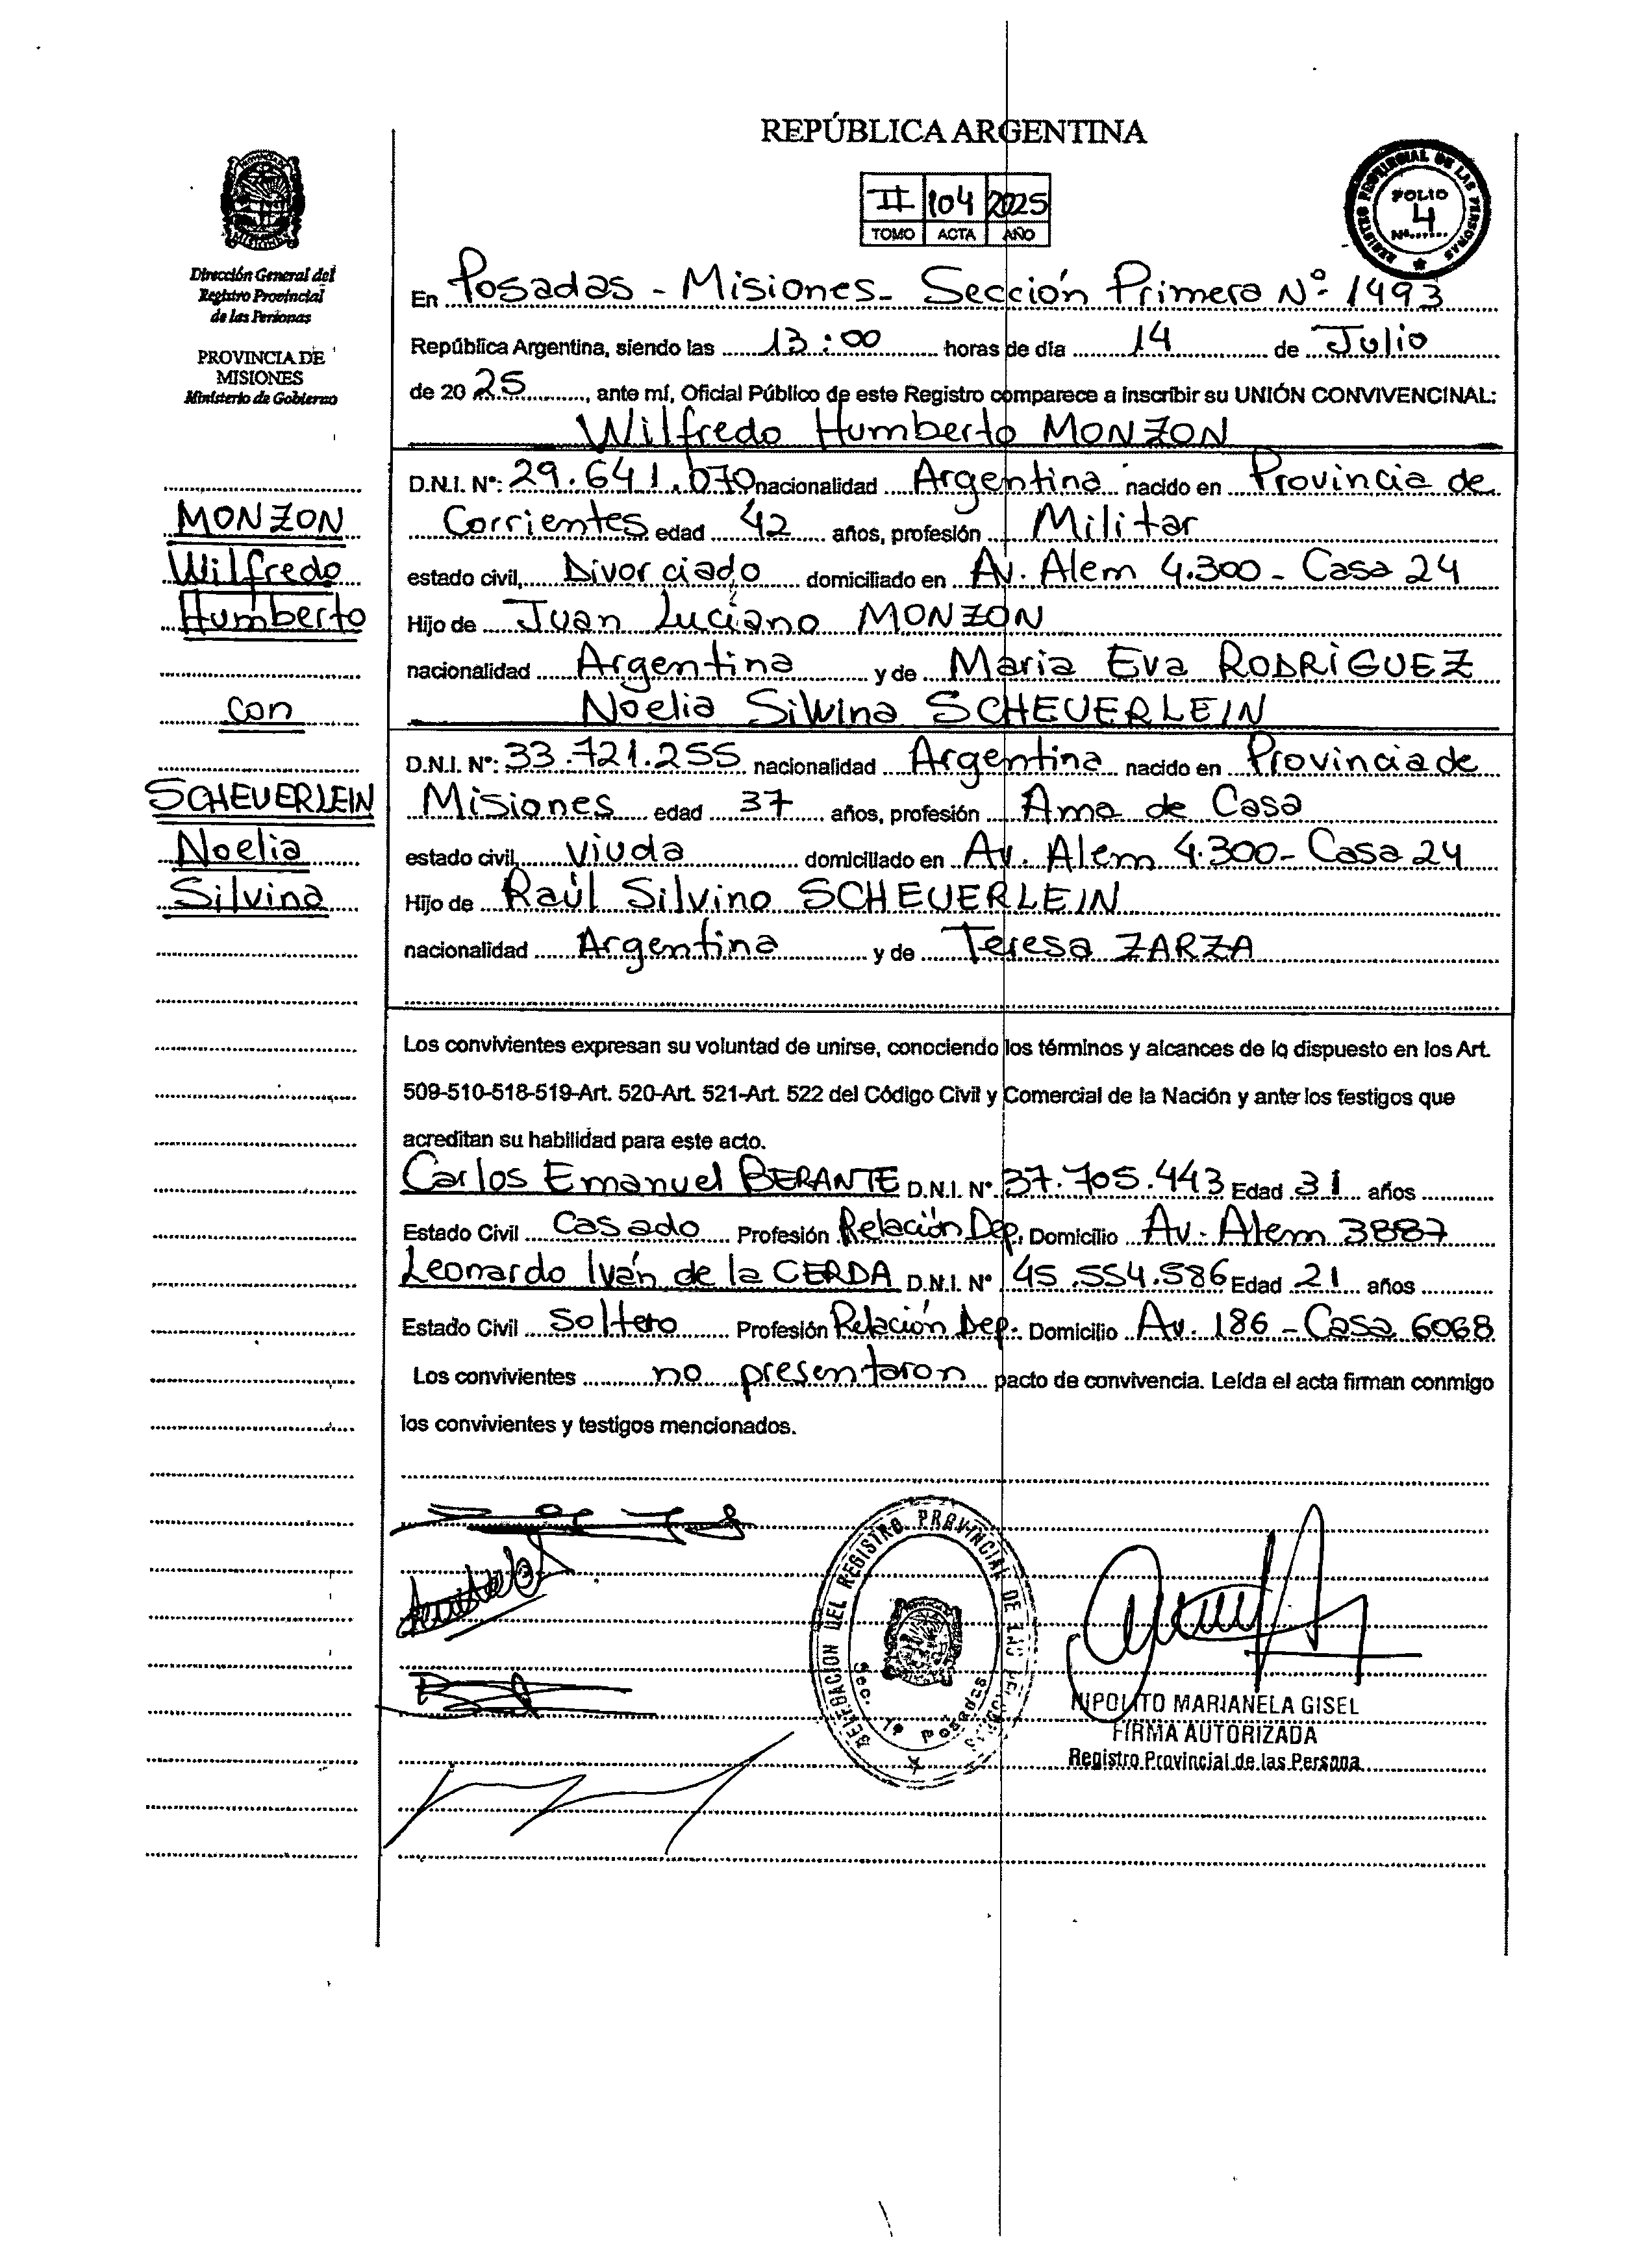 REPÚBLICA ARGENTINA
II 104 2025
TOMO ACTA AÑO
REGISTRO PROVINCIAL DE LAS PERSONAS
FOLIO
4
Nº.......
Dirección General del
Registro Provincial
de las Personas
PROVINCIA DE
MISIONES
Ministerio de Gobierno
En Posadas - Misiones - Sección Primera Nº 1493
República Argentina, siendo las 13:00 horas de día 14 de Julio
de 20 25, ante mí, Oficial Público de este Registro comparece a inscribir su UNIÓN CONVIVENCINAL:
Wilfredo Humberto MONZON
D.N.I. Nº: 29.641.070 nacionalidad Argentina nacido en Provincia de
Corrientes edad 42 años, profesión Militar
estado civil, Divorciado domiciliado en Av. Alem 4.300 - Casa 24
Hijo de Juan Luciano MONZON
nacionalidad Argentina y de Maria Eva RODRÍGUEZ
Noelia Silvina SCHEUERLEIN
D.N.I. Nº: 33.721.255 nacionalidad Argentina nacido en Provincia de
Misiones edad 37 años, profesión Ama de Casa
estado civil, Viuda domiciliado en Av. Alem 4.300 - Casa 24
Hijo de Raúl Silvino SCHEUERLEIN
nacionalidad Argentina y de Teresa ZARZA
MONZON
Wilfredo
Humberto
con
SCHEUERLEIN
Noelia
Silvina
Los convivientes expresan su voluntad de unirse, conociendo los términos y alcances de lo dispuesto en los Art.
509-510-518-519-Art. 520-Art. 521-Art. 522 del Código Civil y Comercial de la Nación y ante los testigos que
acreditan su habilidad para este acto.
Carlos Emanuel BERANTE D.N.I. Nº 37.705.443 Edad 31 años
Estado Civil Casado Profesión Relación Dep. Domicilio Av. Alem 3887
Leonardo Iván de la CERDA D.N.I. Nº 45.554.586 Edad 21 años
Estado Civil Soltero Profesión Relación Dep. Domicilio Av. 186 - Casa 6068
Los convivientes no presentaron pacto de convivencia. Leída el acta firman conmigo
los convivientes y testigos mencionados.
DELEGACION DEL REGISTRO PROVINCIAL DE LAS PERSONAS
Sec. 1º Posadas
HIPOLITO MARIANELA GISEL
FIRMA AUTORIZADA
Registro Provincial de las Persona